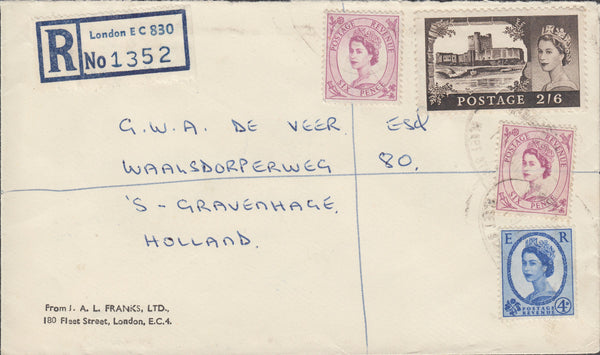 R
London E C 830
No 1352
POSTAGE REVENUE
SIX PENCE
POSTAGE 2/6
G.W.A. DE VEER ESQ
WAALSDORPERWEG 80.
'S-GRAVENHAGE.
HOLLAND.
POSTAGE REVENUE
SIX PENCE
E R
4D
POSTAGE
REVENUE
From J. A. L. FRANKS, LTD.,
180 Fleet Street, London, E.C.4.